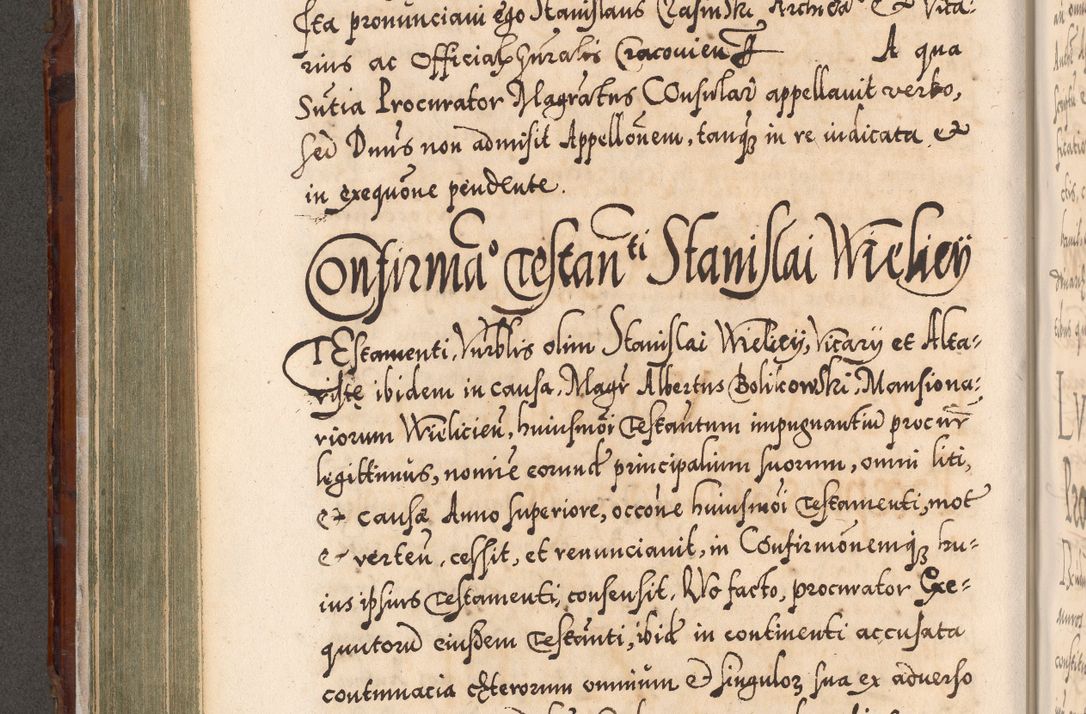 sta pronunciavi ego Stanislaus Crasinski Archida et Vica=
rius ac Officialis gnralis Cracovien A qua
Suntia Procurator Magratus Consular appellavit verbo,
sed Dnus non admisit Appellonem, tanq in re iudicata et
in exequone pendente.
Confirmao Testanti Stanislai Wielicij
Testamenti, Vnrblis olim Stanislai Wielicij, Vicarij et Alta=
ristę ibidem in causa, Magr Albertus Bolikowski, Mansiona=
riorum Wielicien, huiusmoi Testantum impugnantiu procur
legittimus, nomine eorund principalium suorum, omni liti,
et causæ Anno superiore, occone huiusmoi Testamenti, mot
et verten, cessit, et renunciavit, in Confirmonemq hu=
ius ipsius Testamenti, consensit. Quo facto, procurator Exe=
quutoru eiusdem Testanti, ibid in continenti accusata
contumacia cæterorum omnium et singuloz sua ex adverso